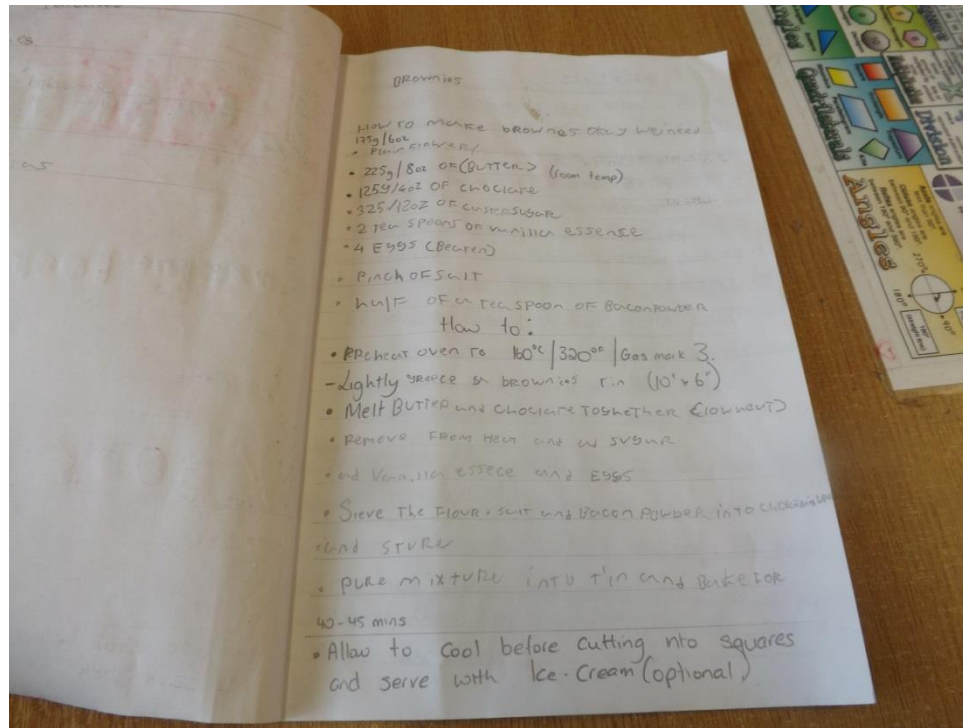 Brownies
How to make brownes okay we need
175g/6oz
• Plain Flowery
• 225g/8oz OF (Butter) (room temp)
• 125g/4oz OF choclate
• 325/12oz OF custersugare
• 2 tea spoons of vanilla essense
• 4 Eggs (Beaten)
• Pinch OF salt
• half of a tea spoon of Baconpowder
How to:
• PReheat oven to 160°C | 320°F | Gas mark 3.
- Lightly greece a brownies tin (10" x 6")
• Melt Butter and choclate Toghether (low heat)
• Remove From Heat and ad sugur
• ad Vanilla essece and Eggs
• Sieve The Flour • salt and Bacon Powder into
• and sture
• pure mixture into tin and Bake for
40-45 mins
• Allow to cool before cutting nto squares
and serve with Ice-Cream (optional)
Angles
Quadrilaterals
Division
Angles
270°
180°
90°